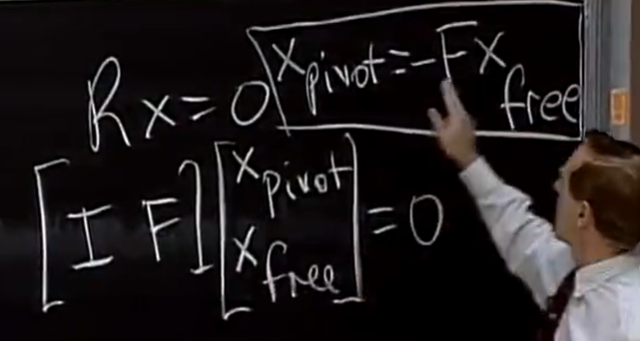 Rx=0
x pivot = -Fx free
[I F] [x pivot
x free] = 0